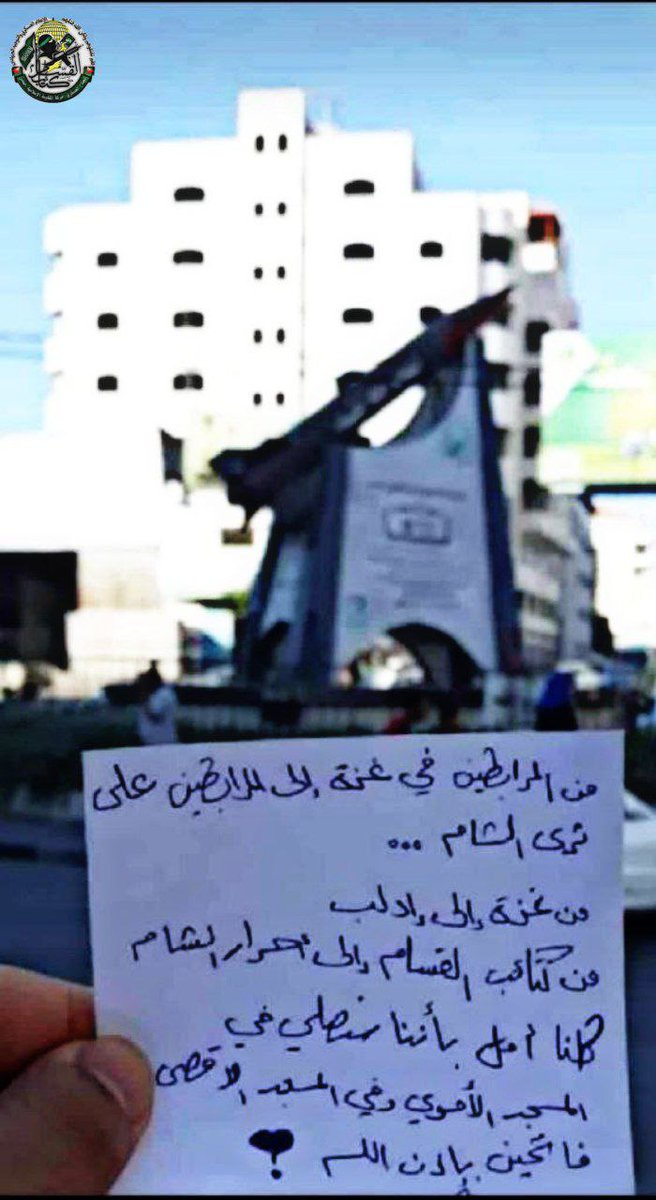 من المرابطين في غزة إلى المرابطين على
ثرى الشام ...
من غزة إلى إدلب
من كتائب القسام إلى أحرار الشام
كلنا أمل بأننا سنصلي في
المسجد الأموي وفي المسجد الاقصى
فاتحين بإذن الله